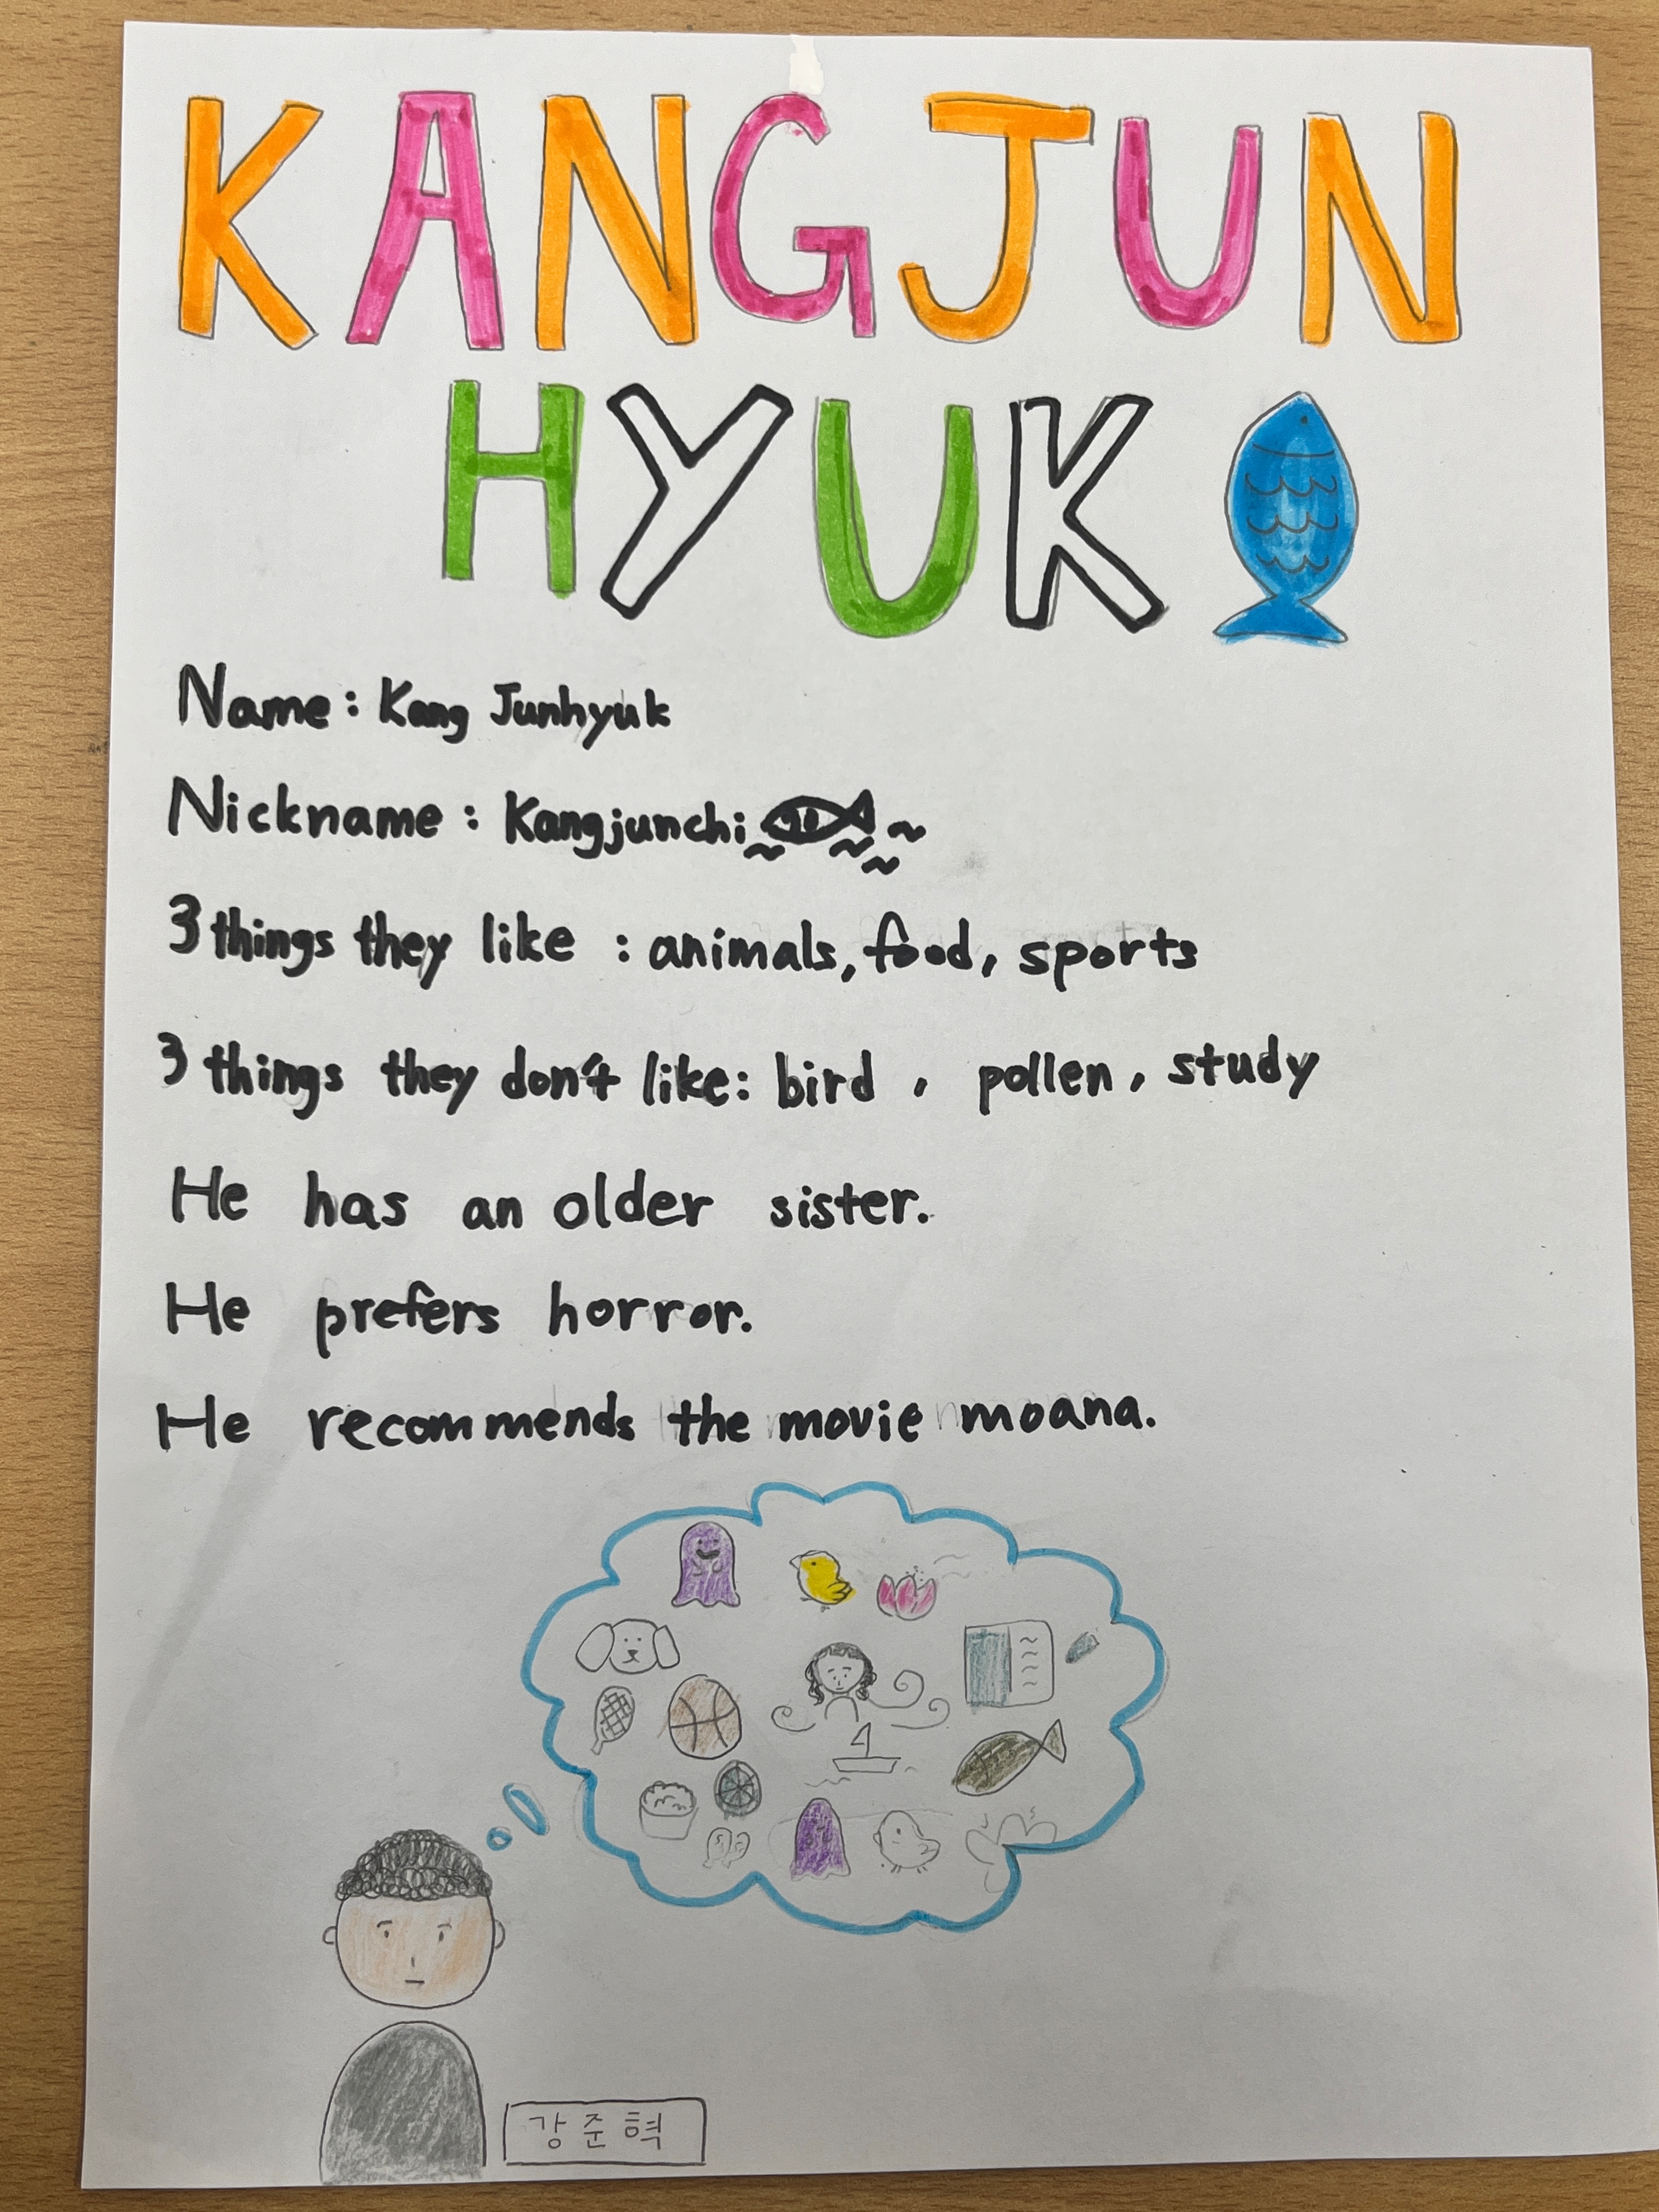 KANGJUN
HYUK
Name: Kang Junhyuk
Nickname: Kangjunchi
3 things they like : animals, food, sports
3 things they don't like: bird, pollen, study
He has an older sister.
He prefers horror.
He recommends the movie moana.
강준혁